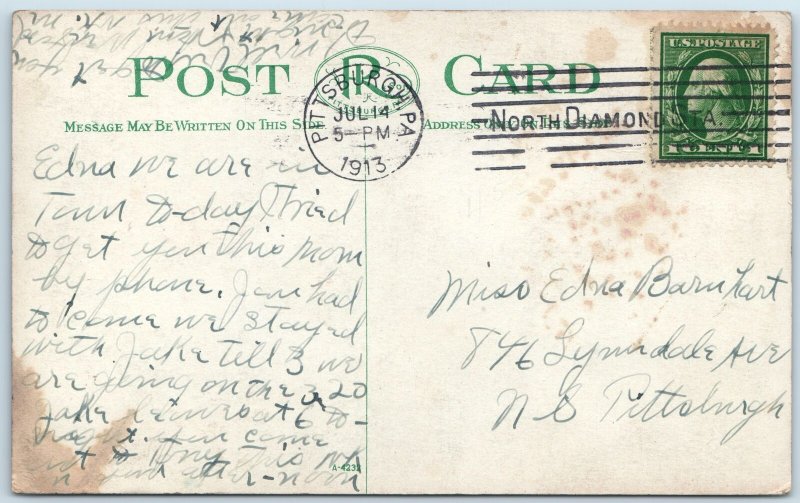 POST CARD
MESSAGE MAY BE WRITTEN ON THIS SIDE
ADDRESS
PITTSBURGH, PA
JUL 14
5 - PM
1913
NORTH DIAMOND STA.
U.S. POSTAGE
1 CENT 1
Edna we are in
Town to-day I tried
to get you this morn
by phone. Jen had
to come we stayed
with Jake till 3 we
are going on the 3 20
Jake leaves at 6 to-
night. you come
out to this
after-noon
A-4232
Miss Edna Barnhart
846 Lynndale Ave
N S Pittsburgh